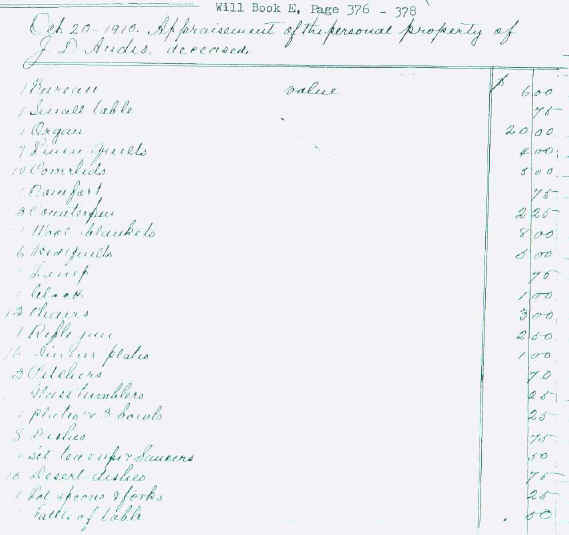 Will Book E, Page 376 - 378
Oct. 20 - 1910. Appraisement of the personal property of
J D Andis, deceased.
1 Bureau value $ 6 00
1 Small table 75
1 Organ 20 00
7 quilts 4 00
10 Coverleds 5 00
1 Comfort 75
3 Counterpin 2 25
Wool blankets 8 00
6 quilts 6 00
1 Lamp 75
1 Clock 1 00
12 Chairs 3 00
1 Rifle gun 2 50
Dinner plates 1 00
3 Pitchers 70
Glass tumblers 25
1 Platter & 3 bowls 25
8 Dishes 75
1 Set tea cups & Saucers 50
10 Desert dishes 75
1 Lot spoons & forks 25
table 50